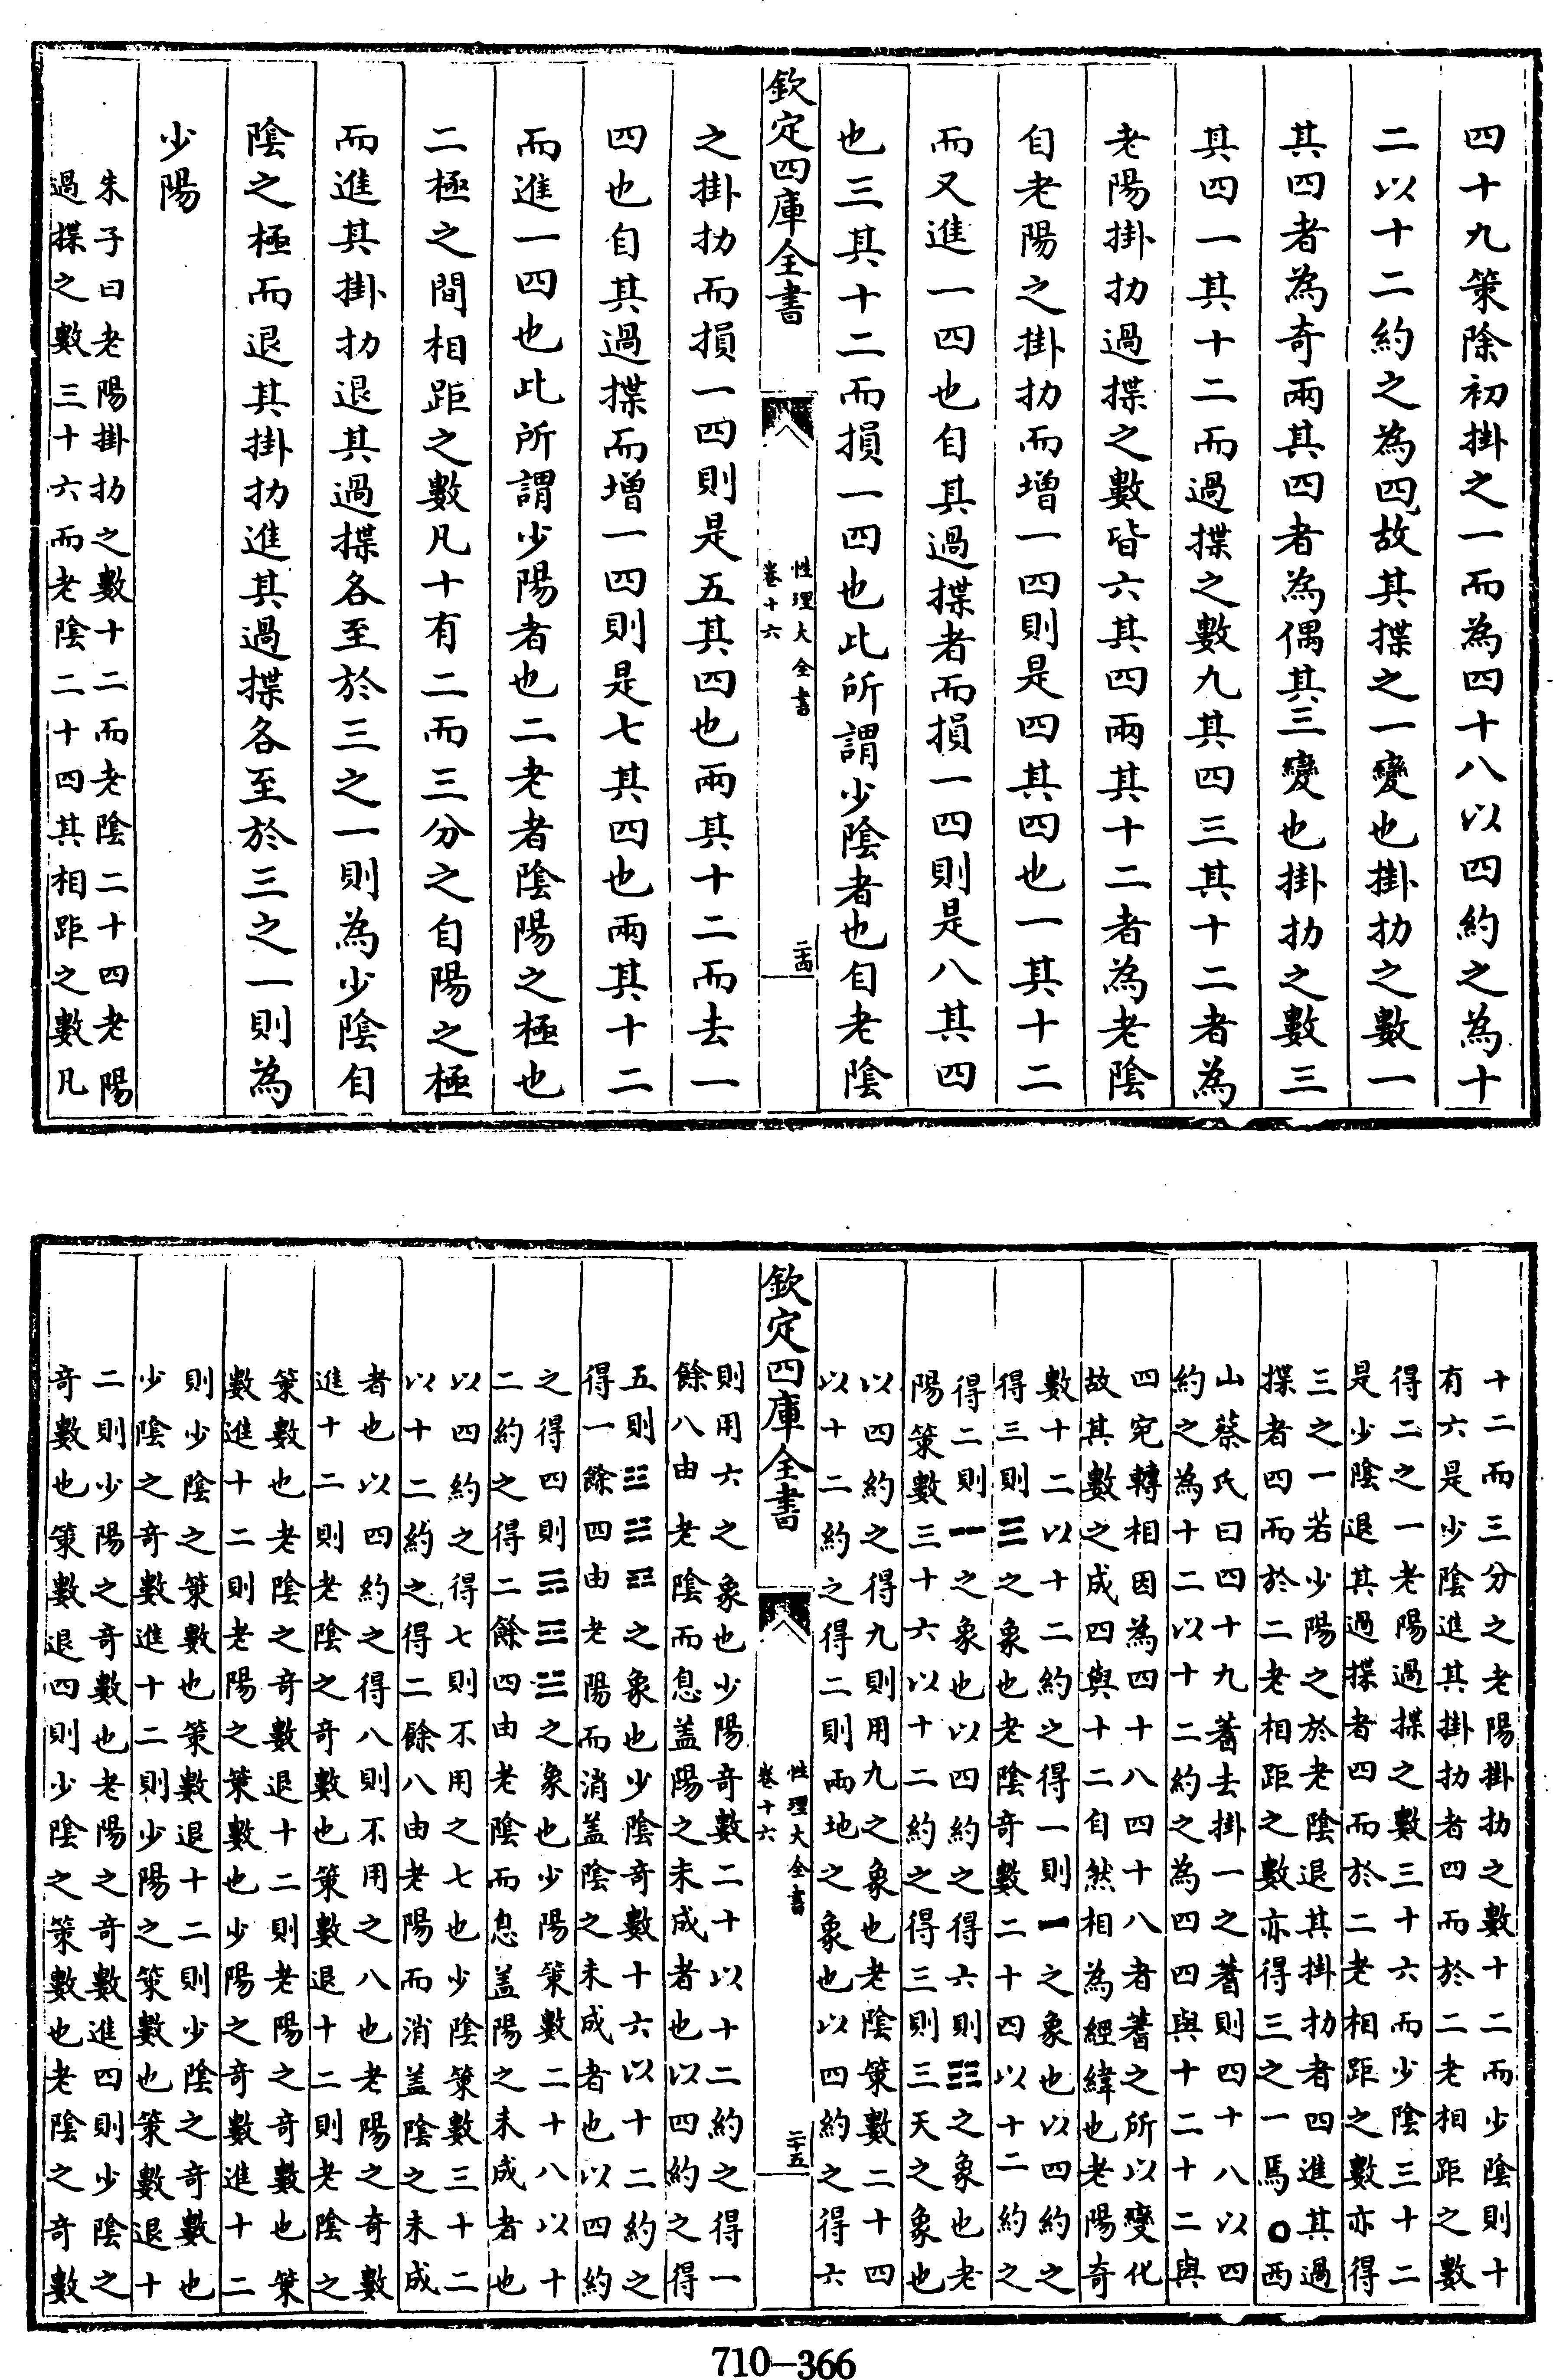 四十九策除初掛之一而為四十八以四約之為十
二以十二約之為四故其揲之一變也掛扐之數一
其四者為奇兩其四者為偶其三變也掛扐之數三
其四一其十二而過揲之數九其四三其十二者為
老陽掛扐過揲之數皆六其四兩其十二者為老陰
自老陽之掛扐而增一四則是四其四也一其十二
而又進一四也自其過揲者而損一四則是八其四
也三其十二而損一四也此所謂少陰者也自老陰
欽定四庫全書
性理大全書
卷十六
二十四
之掛扐而損一四則是五其四也兩其十二而去一
四也自其過揲而增一四則是七其四也兩其十二
而進一四也此所謂少陽者也二老者陰陽之極也
二極之間相距之數凡十有二而三分之自陽之極
而進其掛扐退其過揲各至於三之一則為少陰自
陰之極而退其掛扐進其過揲各至於三之一則為
少陽
朱子曰老陽掛扐之數十二而老陰二十四老陽
過揲之數三十六而老陰二十四其相距之數凡
十二而三分之老陽掛扐之數十二而少陰則十
有六是少陰進其掛扐者四而於二老相距之數
得二之一老陽過揲之數三十六而少陰三十二
是少陰退其過揲者四而於二老相距之數亦得
三之一若少陽之於老陰退其掛扐者四進其過
揲者四而於二老相距之數亦得三之一焉○西
山蔡氏曰四十九蓍去掛一之蓍則四十八以四
約之為十二以十二約之為四四與十二十二與
四宛轉相因為四十八四十八者蓍之所以變化
故其數之成四與十二自然相為經緯也老陽奇
數十二以十二約之得一則⚊之象也以四約之
得三則☰之象也老陰奇數二十四以十二約之
得二則⚋之象也以四約之得六則☷之象也老
陽策數三十六以十二約之得三則三天之象也
以四約之得九則用九之象也老陰策數二十四
以十二約之得二則兩地之象也以四約之得六
欽定四庫全書
性理大全書
卷十六
二十五
則用六之象也少陽奇數二十以十二約之得一
餘八由老陰而息盖陽之未成者也以四約之得
五則☳☵☶之象也少陰奇數十六以十二約之
得一餘四由老陽而消盖陰之未成者也以四約
之得四則☴☲☱之象也少陽策數二十八以十
二約之得二餘四由老陰而息盖陽之未成者也
以四約之得七則不用之七也少陰策數三十二
以十二約之得二餘八由老陽而消盖陰之未成
者也以四約之得八則不用之八也老陽之奇數
進十二則老陰之奇數也策數退十二則老陰之
策數也老陰之奇數退十二則老陽之奇數也策
數進十二則老陽之策數也少陽之奇數進十二
則少陰之策數也策數退十二則少陰之奇數也
少陰之奇數進十二則少陽之策數也策數退十
二則少陽之奇數也老陽之奇數進四則少陰之
奇數也策數退四則少陰之策數也老陰之奇數
710-366